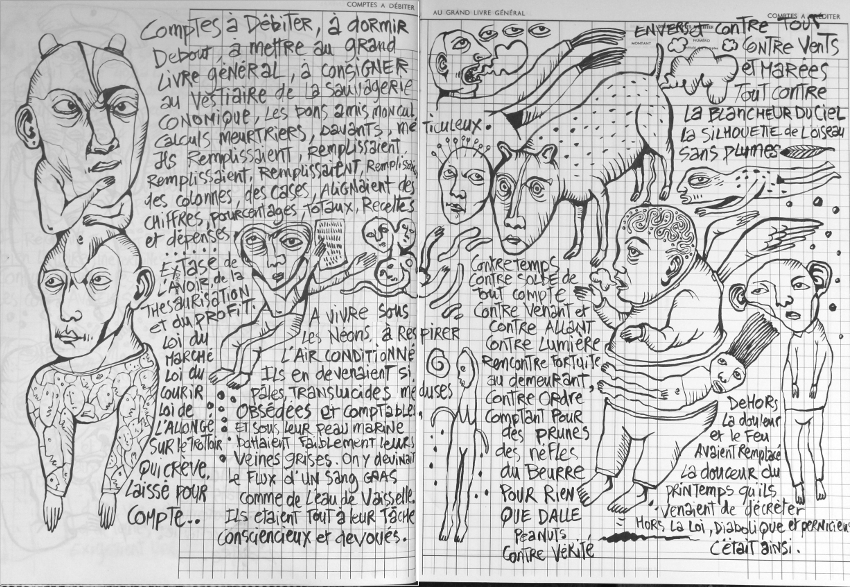 COMPTES A DÉBITER
COMPTES à DÉBiTER, à dORMIR
Debout, à mettre au grand
LiVRE GÉNÉRAL, à CONSiGNER
au VESTiAiRE de LA SAUVAGERiE
CONOMiQUE, LES bons amis
CALCULS MEURTRIERS, SAVANTS, mé
ils REMPLISSAiENT, REMPLISSAIENT,
REMPLISSAIENT, REMPLISSAiENT,
des COLONNES, des CASES, ALiGNAIENT des
CHIFFRES, POURCENTAGES, TOTAUX, RECETTES
et dépenses,
EXTASE de
L'AVOiR, de la
THESAURISATION
et du PROFIT.
Loi du
MARCHÉ
Loi du
COURIR
Loi de
L'ALLONGE
SUR le trottoir
QUi CRÈVE,
LAISSÉ POUR
COMPTE...
A VIVRE SOUS
LES NÉONS, à RESPIRER
L'AIR CONDITIONNÉ
ILS en devenaient si
PÂLES, TRANSLUCIDES méduses
OBSÉDÉES et COMPTABLES,
Et SOUS LEUR PEAU MARINE
battaient FAIBLEMENT LEURS
VEINES GRISES. ON y devinait
le FLUX d'UN SANG GRAS
comme de L'eau de VAISSELLE.
ILS étaient TOUT à leur TÂCHE
CONSCIENCIEUX et dévoués.
AU GRAND LIVRE GÉNÉRAL
COMPTES A DÉBITER
TICULEUX.
ENVERS et CONTRE TOUT
CONTRE VENTS
et MARÉES
TOUT CONTRE
LA BLANCHEUR DU CIEL
LA SILHOUETTE de L'OISEAU
SANS PLUMES
CONTRETEMPS
CONTRE SOLDE de
tout COMPTE
CONTRE VENANT et
CONTRE ALLANT
CONTRE LUMIÈRE
RENCONTRE FORTUITE
au demeurant,
CONTRE ORDRE
COMPTANT POUR
des PRUNES
des nèfles
du BEURRE
POUR RIEN
QUE DALLE
PEANUTS
CONTRE VÉRITÉ
DEHORS
LA douleur
et le FEU
AVAIENT REMPLACÉ
LA douceur du
PRINTEMPS qu'ils
venaient de décréter
HORS LA LOI, DIABOLIQUE et pernicieux
C'était AINSI.